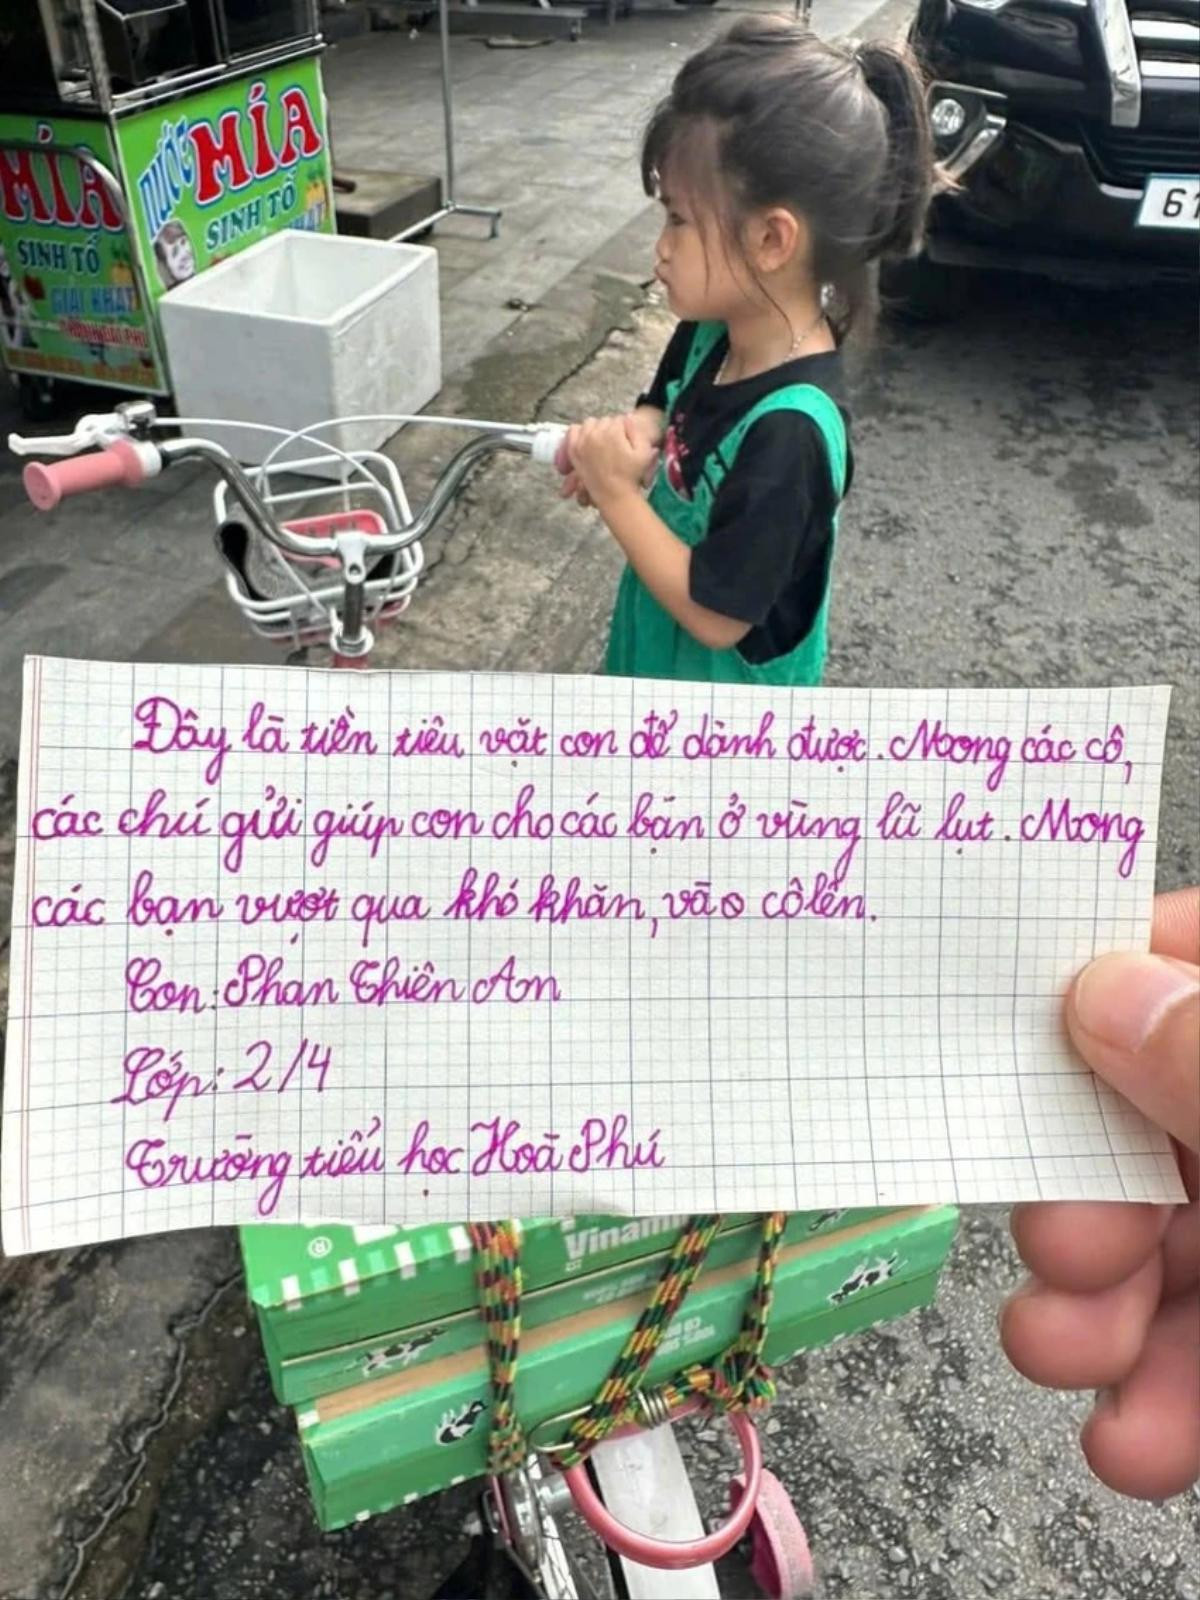 MÍA
SINH TỐ
GIẢI KHÁT
NƯỚC
MÍA
SINH TỐ
KHÁT
61
Đây là tiền tiêu vặt con để dành được. Mong các cô,
các chú gửi giúp con cho các bạn ở vùng lũ lụt. Mong
các bạn vượt qua khó khăn, vào cố lên.
Con: Phan Thiên An
Lớp: 2/4
Trường tiểu học Hoà Phú
®
Vinam